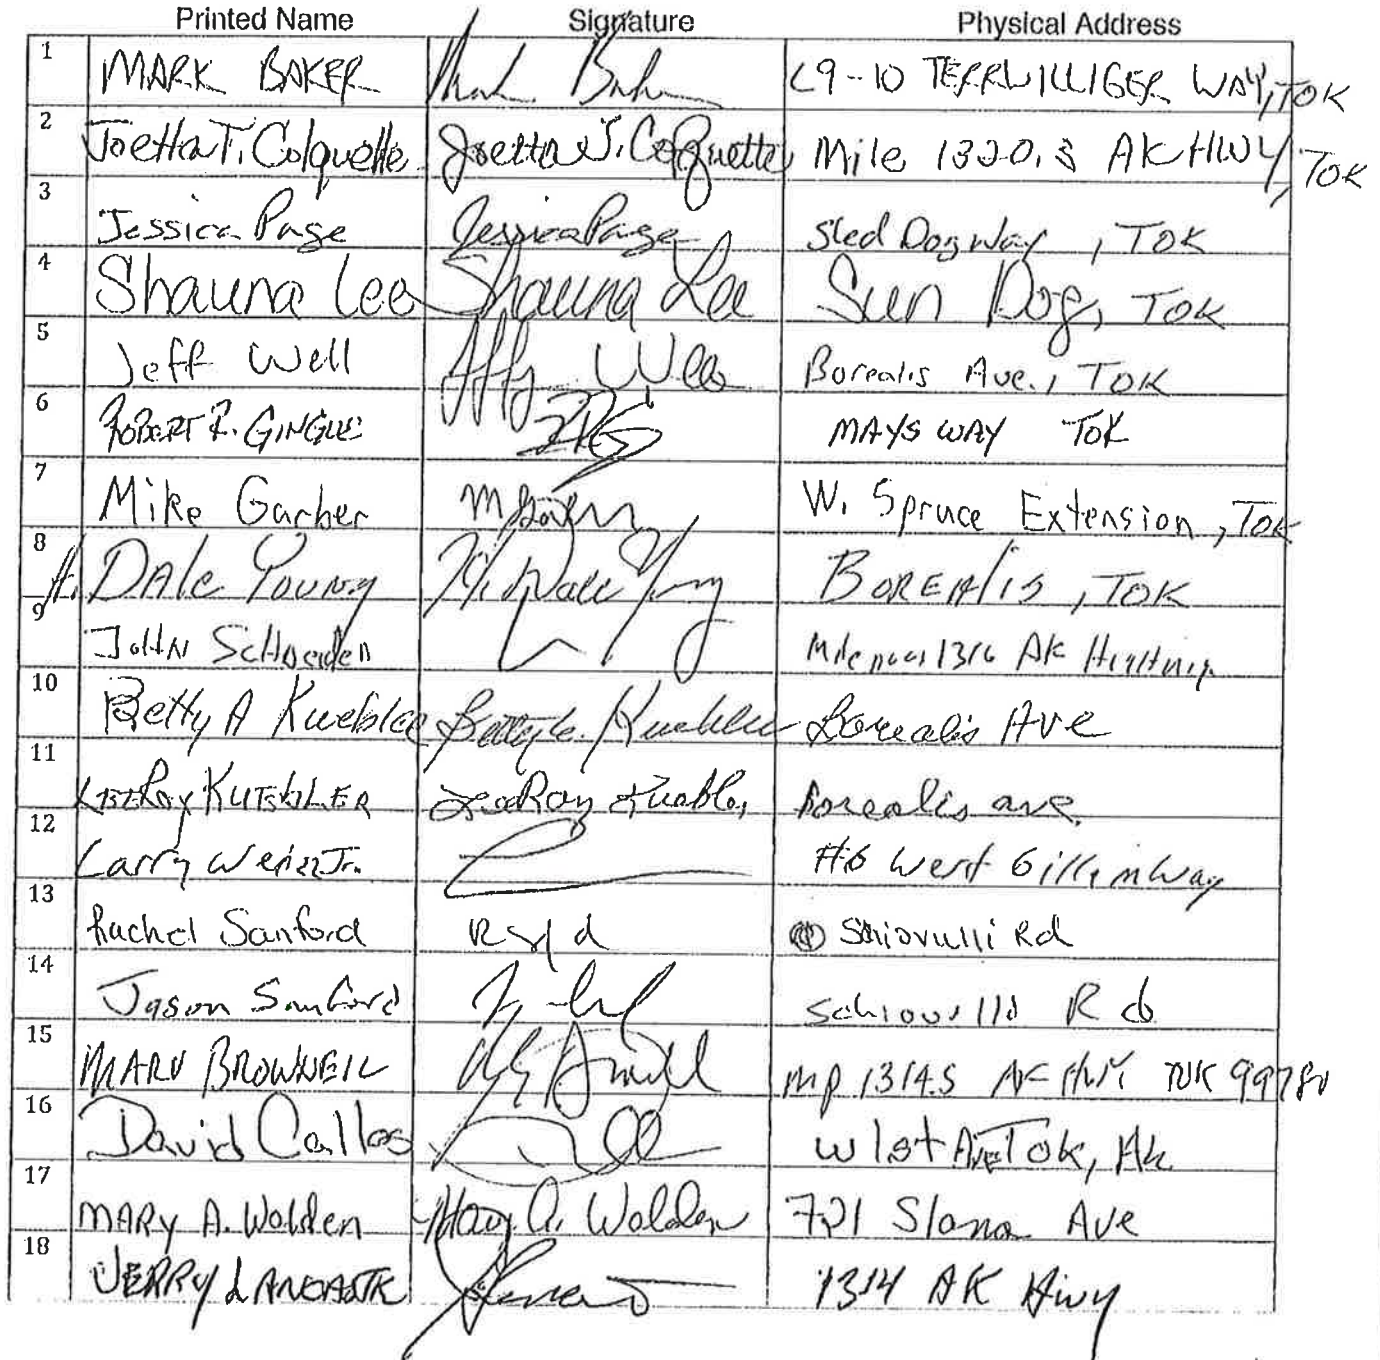 Printed Name Signature Physical Address
1 MARK BAKER Mark Bak L9-10 TERRWILLIGER WAY, TOK
2 Joetta T. Colquette Joetta T. Colquette Mile 1320.5 AK HWY, TOK
3 Jessica Page Jessica Page Sled Dog Way, TOK
4 Shauna Lee Shauna Lee Sun Dog, TOK
5 Jeff Well Borealis Ave., TOK
6 ROBERT R. GINGUE RRG MAYS WAY TOK
7 Mike Garber W. Spruce Extension, TOK
8 H. DAle Young H. Dale Young BOREAlis, TOK
9 JOHN 1316 AK
10 Betty A Kuebler Kuebler Borealis AVE
11 LEEROY KUEBLER LeeRoy Kuebler Borealis ave.
12 Larry Jr. #6 West
13 Rachel Sanford Rd
14 Jason Sanford Rd
15 MARV BROWNELL MP 1314.5 AK HWY TOK 99780
16 David Callos W 1st Ave Tok, AK
17 MARY A. Wolden Mary A. Wolden 721 Slana Ave
18 JERRY 1314 AK Hwy